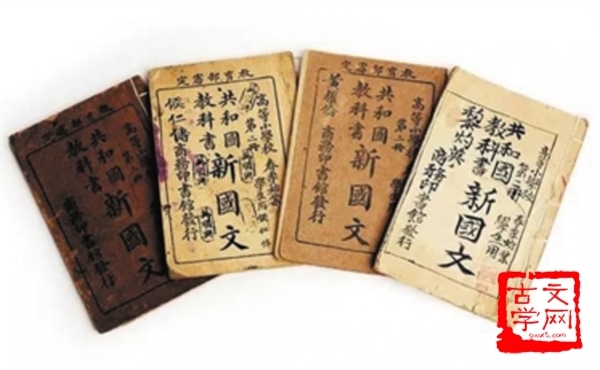 教育部審定
高等小學校
共和國
教科書
新國文
商務印書館發行
教育部審定
高等小學校
春季始業
共和國
教科書
新國文
商務印書館發行
教育部審定
高等小學校
共和國
教科書
新國文
商務印書館發行
高等小學校
春季始業
學生用
共和國
教科書
新國文
商務印書館發行
古文
学网